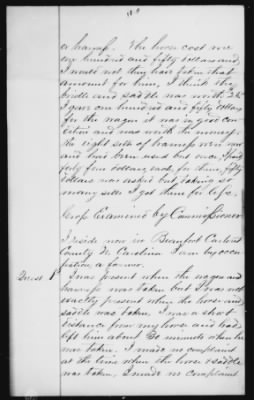 a harness. The horse cost me
one hundred and fifty dollars and
I would not they have taken that
amount for him, I think the
bridle and saddle was worth
I gave one hundred and fifty dollars
for the wagon it was in good con
dition and was worth the money
the eight sets of harness were new
and had been used but once, I paid
only four dollars each, for them, fifty
dollars was asked but taking so
many sets I got them for less.
Cross Examined by Commissioner
I reside now in Beaufort Carteret
County N. Carolina I am by occu
pation a farmer.
Quest 1 I was present when the wagon and
harness was taken but I was not
exactly present when the horse and
saddle was taken. I was a short
distance from my horse and had
left him about 20 minutes when he
was taken. I made no complaint
at the time when the horse & saddle
was taken, I made no complaint